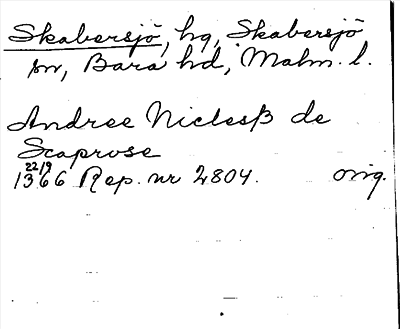 Skabersjö, hg, Skabersjö
sn, Bara hd, Malm. l.
Andree Niclesß de
Scaprose
22/9
1366 Rep. nr 2804. orig.